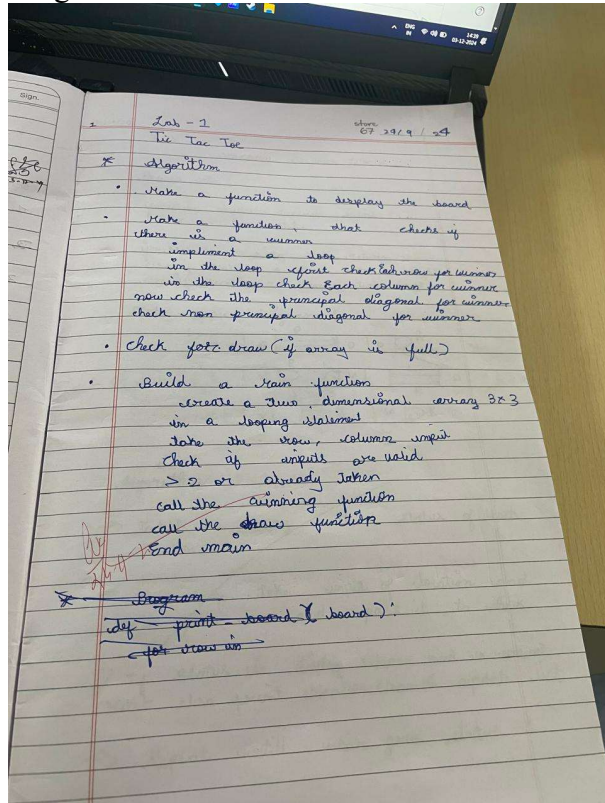 ENG
IN
14:39
03-12-2024
Sign.
1
Lab - 1
Tic Tac Toe
24/9/24
* Algorithm
• Make a function to desplay the board
• Make a function, that checks if
there is a winner
impliment a loop
in the loop first check Each row for winner
in the loop check Each column for winner
now check the principal diagonal for winner
check non principal diagonal for winner
• Check for draw (if array is full)
• Build a main function
create a two dimensional array 3x3
in a looping statement
take the row, column input
Check if inputs are valid
> 2 or already taken
call the winning function
call the draw function
End main
* Program
def print_board (board):
for row in